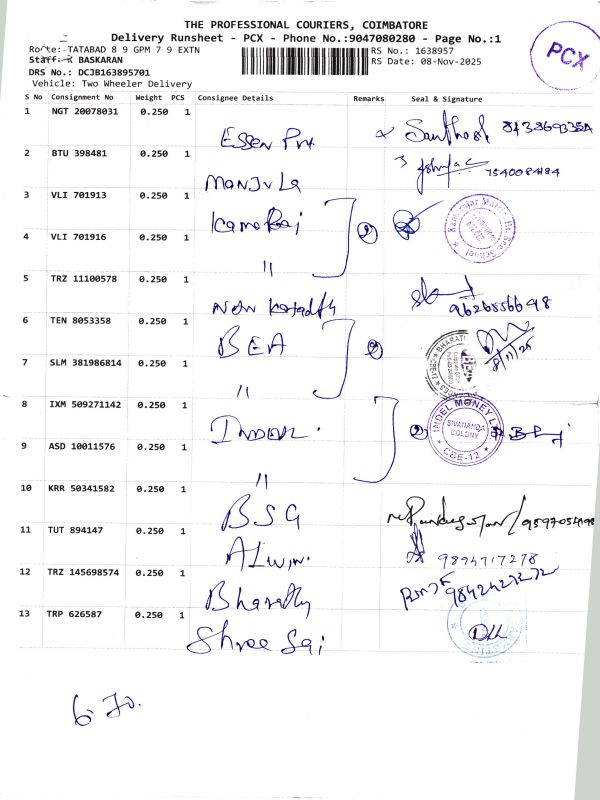 THE PROFESSIONAL COURIERS, COIMBATORE
Delivery Runsheet - PCX - Phone No.:9047080280 - Page No.:1
PCX
Route: TATABAD 8 9 GPM 7 9 EXTN
RS No.: 1638957
Staff: R BASKARAN
RS Date: 08-Nov-2025
DRS No.: DCJB163895701
Vehicle: Two Wheeler Delivery
S No Consignment No Weight PCS Consignee Details Remarks Seal & Signature
1 NGT 20078031 0.250 1 Essen Santhosh
2 BTU 398481 0.250 1 Manjula
3 VLI 701913 0.250 1 Kamaraj 2
4 VLI 701916 0.250 1 "
5 TRZ 11100578 0.250 1 New 9626856698
6 TEN 8053358 0.250 1 BEA 2 8/11/25
7 SLM 381986814 0.250 1 "
8 IXM 509271142 0.250 1 Indel 2 INDEL MONEY LTD SIVANANDA COLONY CBE-12
9 ASD 10011576 0.250 1 "
10 KRR 50341582 0.250 1 BSG
11 TUT 894147 0.250 1 Alwin 9894717278
12 TRZ 145698574 0.250 1 Bharathy
13 TRP 626587 0.250 1 Shree Sai